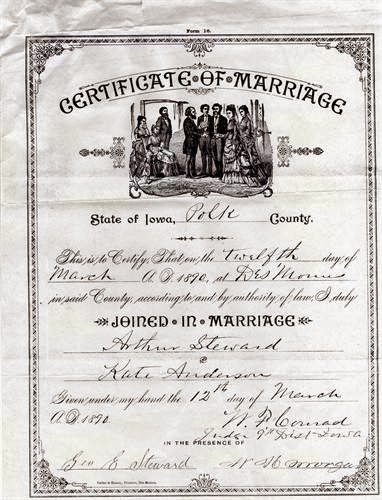 Form 16.
CERTIFICATE OF MARRIAGE
State of Iowa, Polk County.
This is to Certify, That on the twelfth day of
March A.D. 1890, at Des Moines
in said County, according to and by authority of law, I duly
JOINED IN MARRIAGE
Arthur Steward
&
Kate Anderson
Given under my hand the 12th day of March
A.D. 1890.
W. F. Conrad
Judge 9th Dist Iowa
IN THE PRESENCE OF
Geo E Steward W H